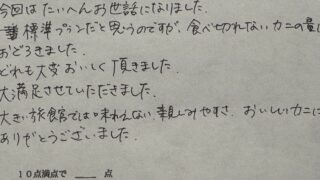 今回はたいへんお世話になりました.
標準プランだと思うのですが、食べ切れないカニの量に
おどろきました.
どれも大変おいしく頂きました.
大満足させていただきました.
大きい旅館では味わえない親しみやすさ、おいしいカニに
ありがとうございました.
10点満点で ___ 点